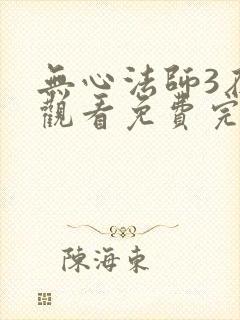 無心法師3
觀看免費完
陳海東